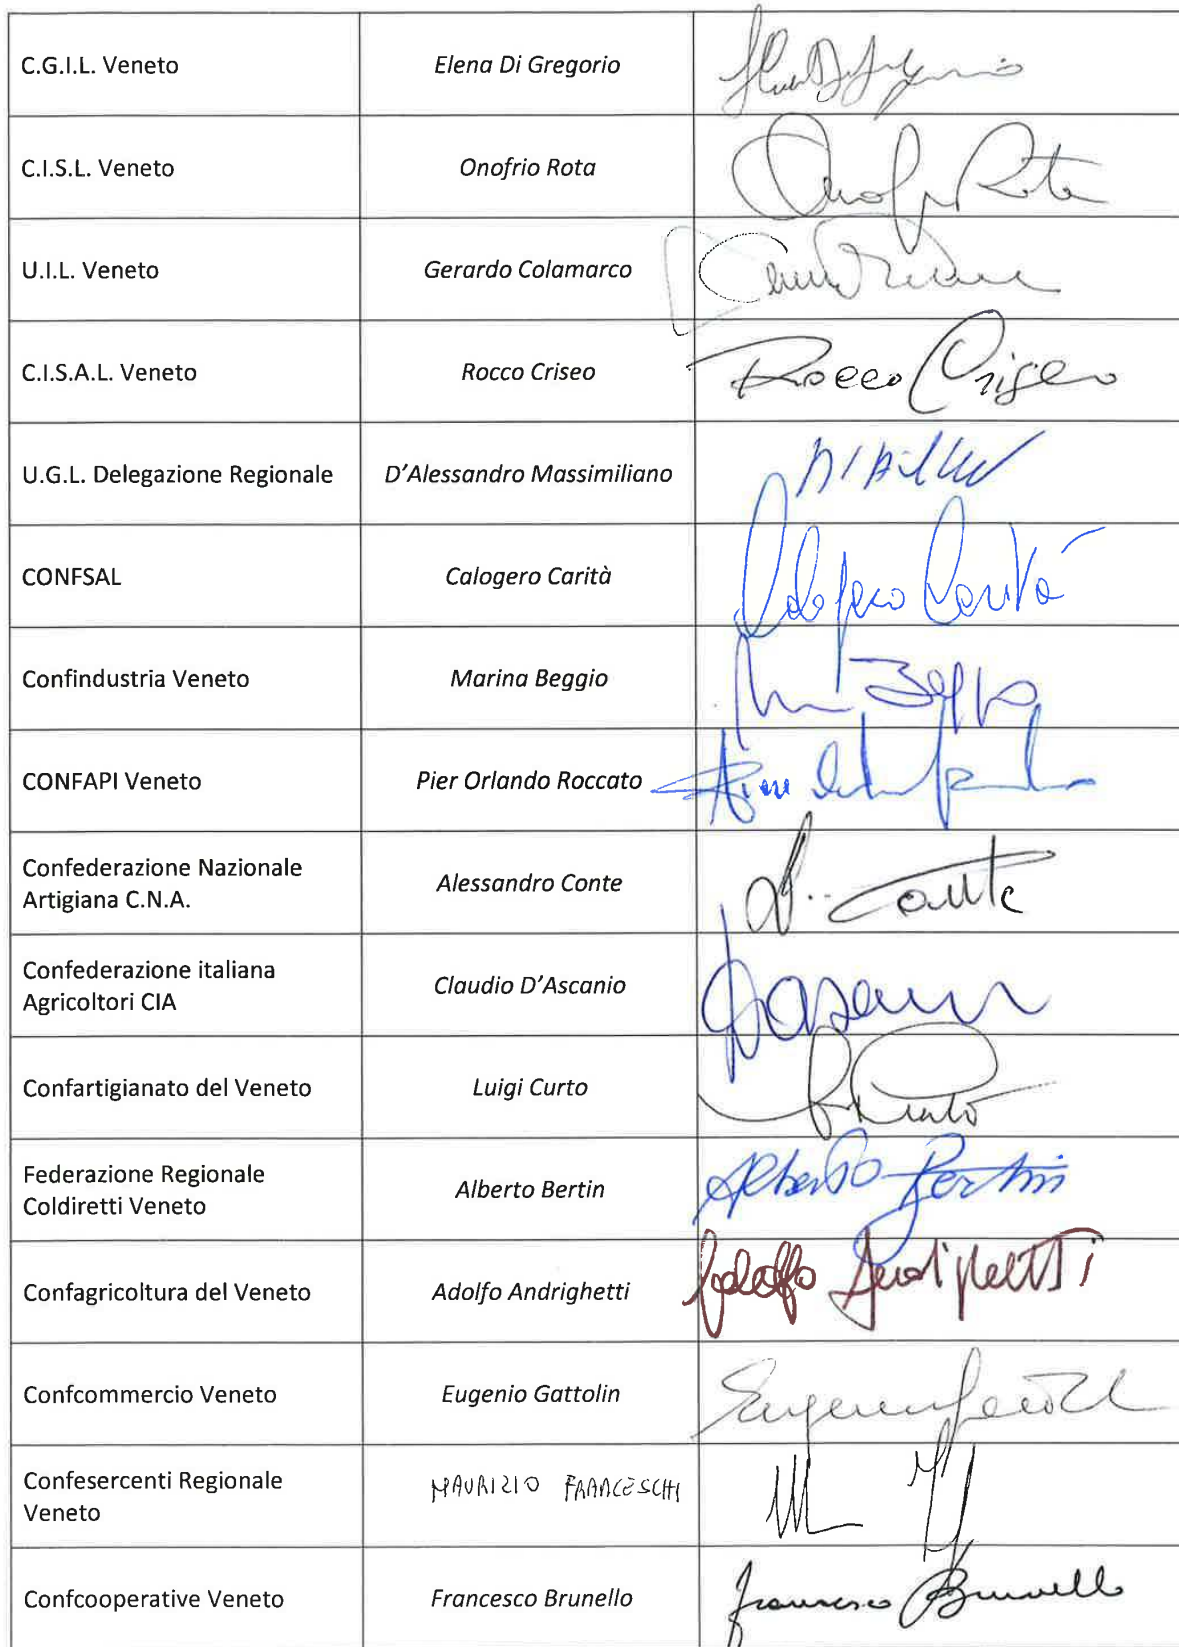 C.G.I.L. Veneto Elena Di Gregorio
C.I.S.L. Veneto Onofrio Rota Onofrio Rota
U.I.L. Veneto Gerardo Colamarco
C.I.S.A.L. Veneto Rocco Criseo Rocco Criseo
U.G.L. Delegazione Regionale D'Alessandro Massimiliano
CONFSAL Calogero Carità Calogero Carità
Confindustria Veneto Marina Beggio
CONFAPI Veneto Pier Orlando Roccato
Confederazione Nazionale
Artigiana C.N.A. Alessandro Conte A. Conte
Confederazione italiana
Agricoltori CIA Claudio D'Ascanio
Confartigianato del Veneto Luigi Curto
Federazione Regionale
Coldiretti Veneto Alberto Bertin Alberto Bertin
Confagricoltura del Veneto Adolfo Andrighetti Adolfo Andrighetti
Confcommercio Veneto Eugenio Gattolin
Confesercenti Regionale
Veneto MAURIZIO FRANCESCHI
Confcooperative Veneto Francesco Brunello Francesco Brunello